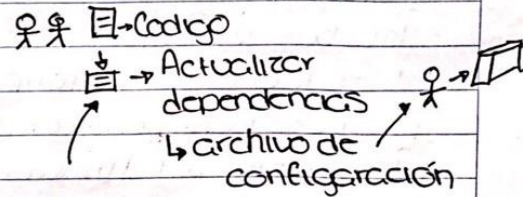 →Codigo
→ Actualizar
dependencias
↳ archivo de
configaración